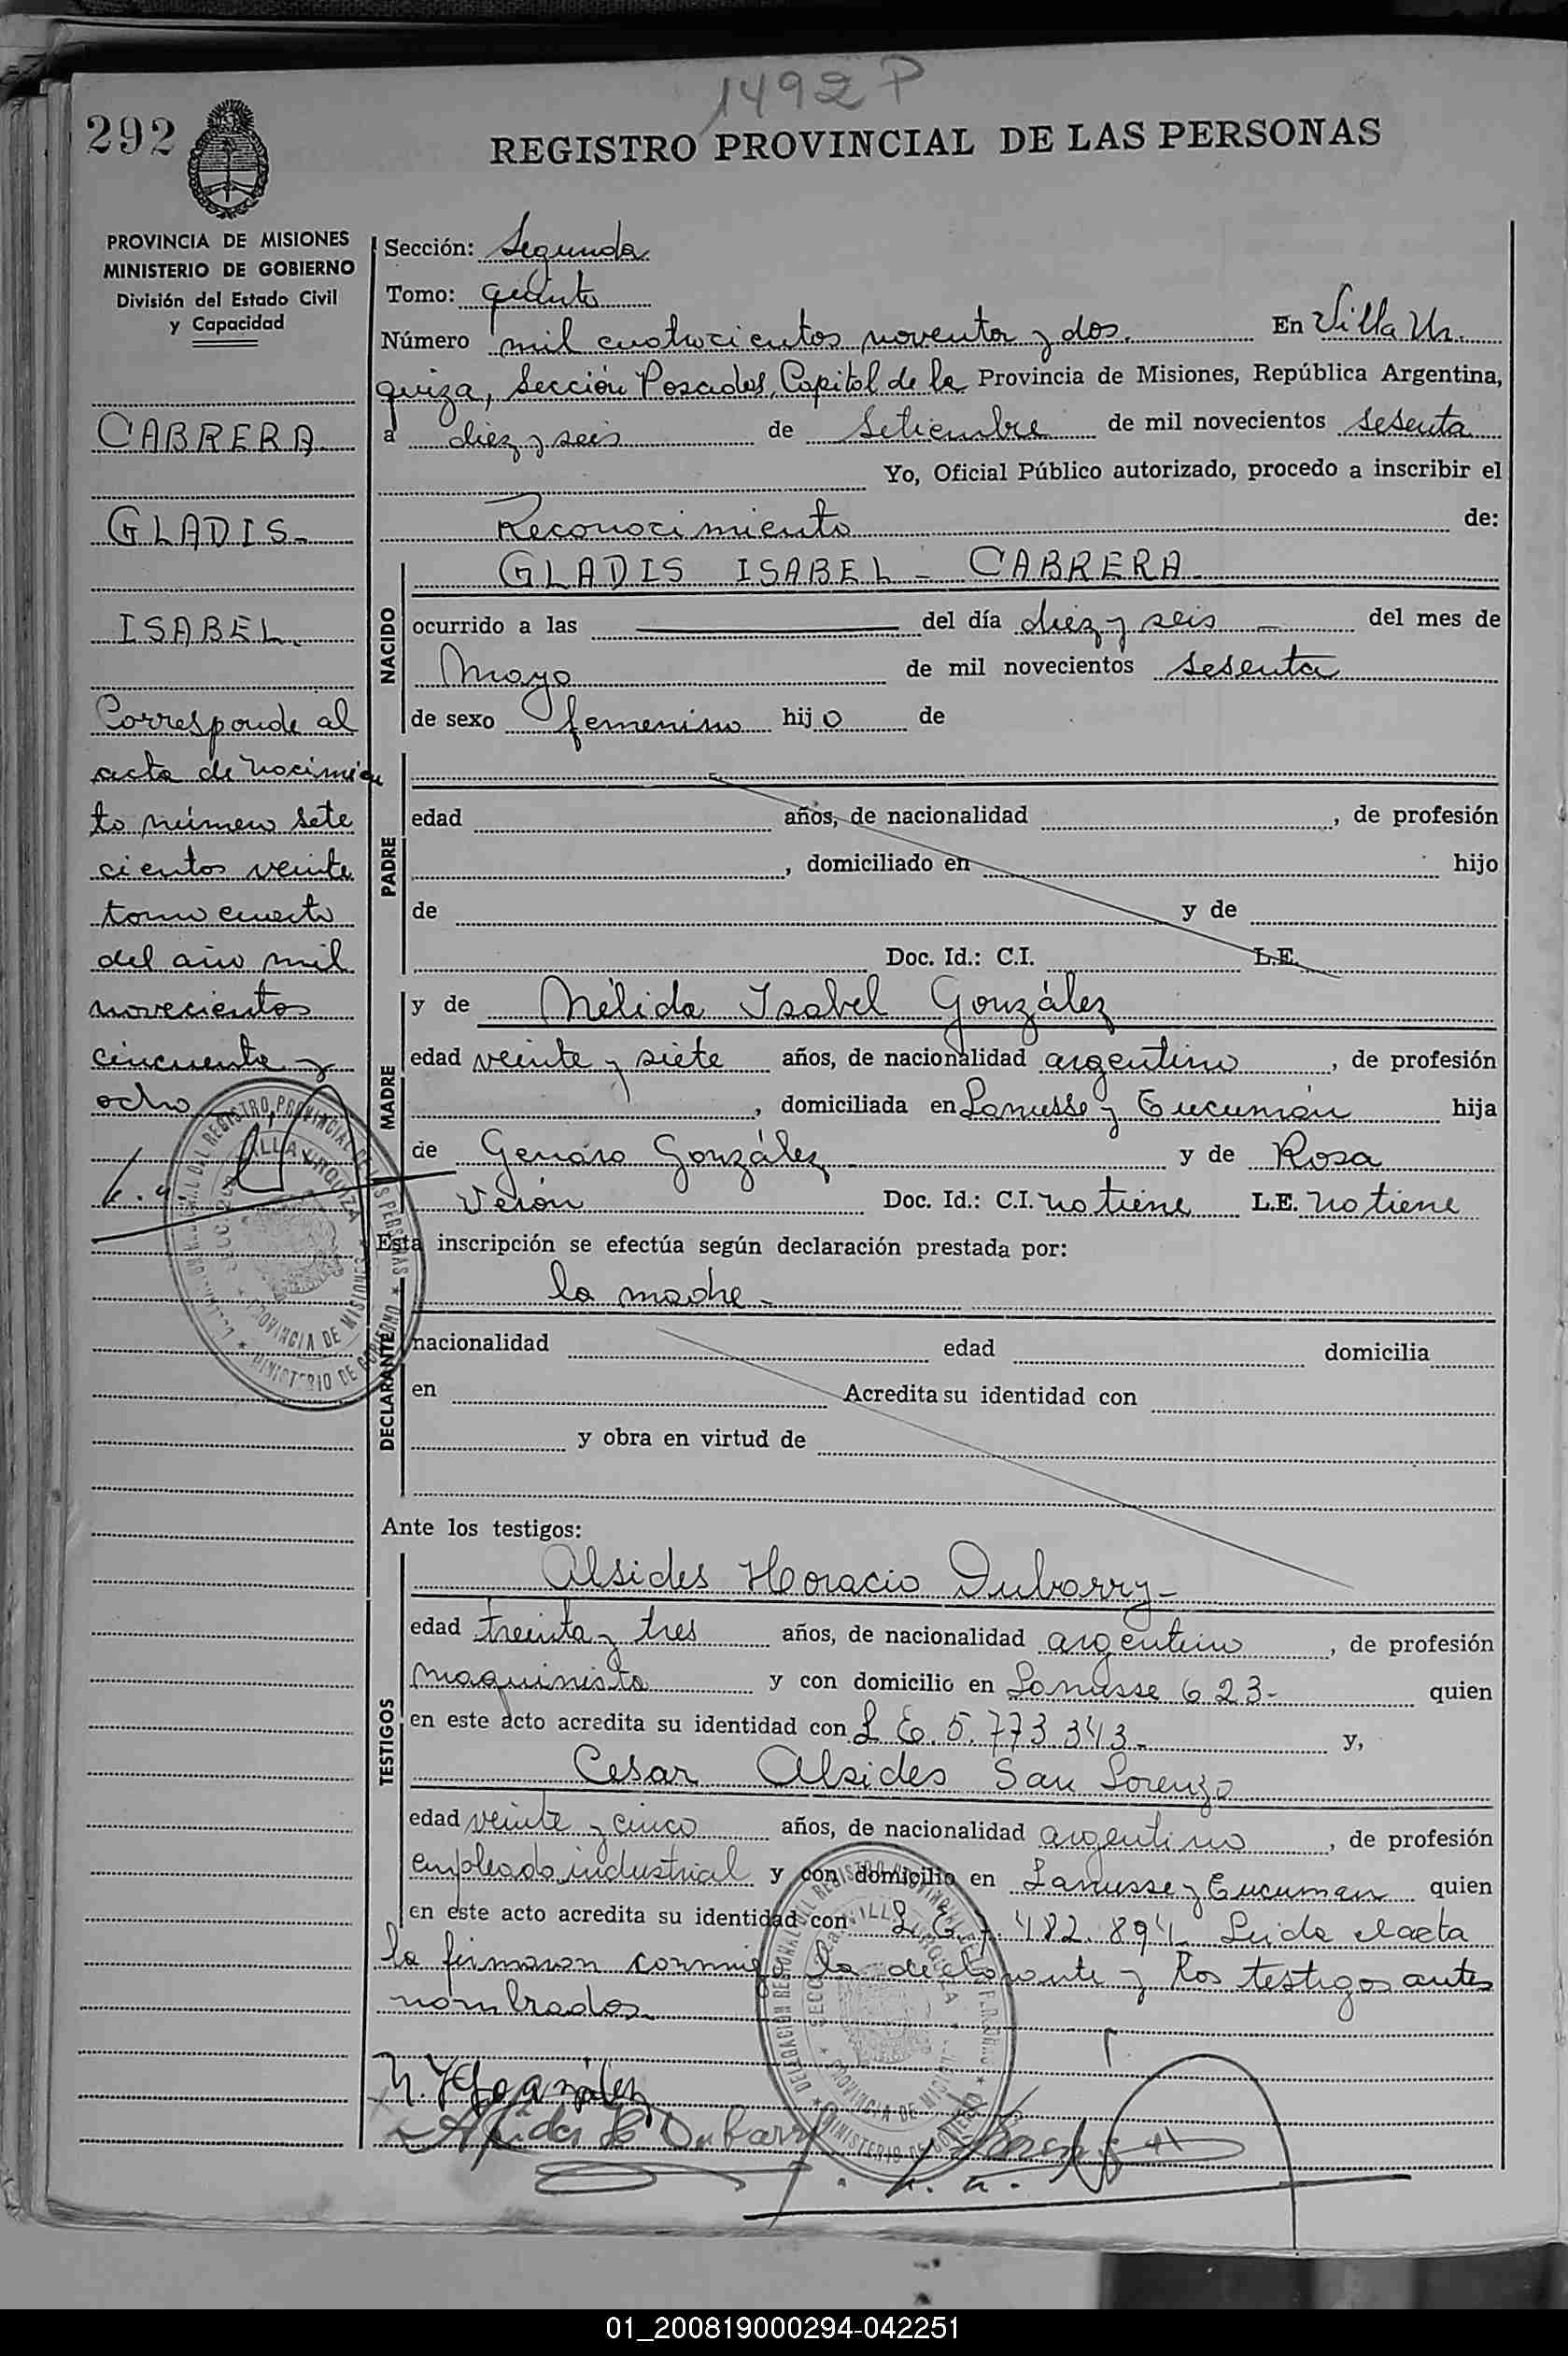 1492 P
292
REGISTRO PROVINCIAL DE LAS PERSONAS
PROVINCIA DE MISIONES
MINISTERIO DE GOBIERNO
División del Estado Civil
y Capacidad
CABRERA
GLADIS-
ISABEL.
Corresponde al
acta de nacimien
to número sete
cientos veinte
tomo cuarto
del año mil
novecientos
cincuenta y
ocho
Sección: Segunda
Tomo: quinto
Número mil cuatrocientos noventa y dos. En Villa Ur
quiza, Sección Posadas, Capital de la Provincia de Misiones, República Argentina,
a diez y seis de Setiembre de mil novecientos sesenta
Yo, Oficial Público autorizado, procedo a inscribir el
Reconocimiento de:
NACIDO
GLADIS ISABEL - CABRERA
ocurrido a las del día diez y seis del mes de
Mayo de mil novecientos sesenta
de sexo femenino hijo de
PADRE
edad años, de nacionalidad , de profesión
, domiciliado en hijo
de y de
Doc. Id.: C.I. L.E.
MADRE
y de Nélida Isabel González
edad veinte y siete años, de nacionalidad argentina, de profesión
, domiciliada en Lanusse y Tucumán hija
de Genáro González y de Rosa
Verón Doc. Id.: C.I. no tiene L.E. no tiene
Esta inscripción se efectúa según declaración prestada por:
DECLARANTE
la madre-
nacionalidad edad domicilia
en Acredita su identidad con
y obra en virtud de
Ante los testigos:
TESTIGOS
Alsides Horacio Dubarry-
edad treinta y tres años, de nacionalidad argentino, de profesión
maquinista y con domicilio en Lanusse 623- quien
en este acto acredita su identidad con L E. 5.773.343- y,
Cesar Alsides San Lorenzo
edad veinte y cinco años, de nacionalidad argentino, de profesión
empleado industrial y con domicilio en Lanusse y Tucuman quien
en este acto acredita su identidad con L.E. 482.894. Leida el acta
la firmaron conmigo la declarante y los testigos antes
nombrados
N. Y González
Alsides H Dubarry
01_200819000294-042251